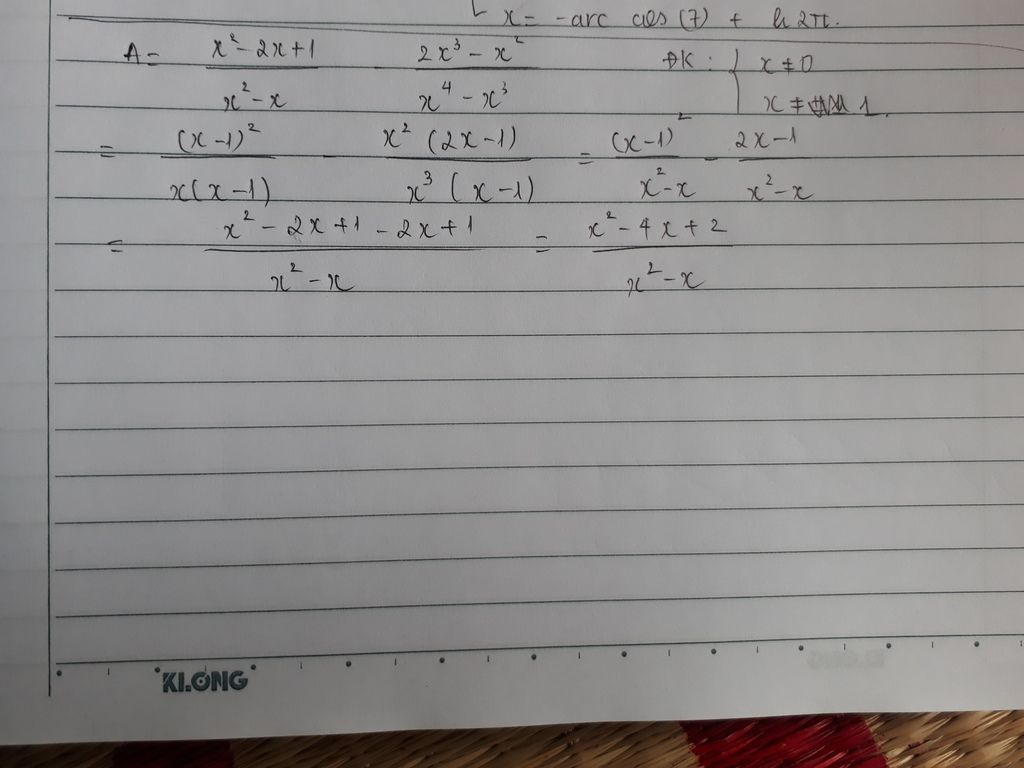 x = -arc cos (7) + k2π.
A = (x² - 2x + 1)/(x² - x) - (2x³ - x²)/(x⁴ - x³) ĐK: { x ≠ 0
x ≠ 1.
= (x-1)²/(x(x-1)) - x²(2x-1)/(x³(x-1)) = (x-1)²/(x²-x) - (2x-1)/(x²-x)
= (x² - 2x + 1 - 2x + 1)/(x² - x) = (x² - 4x + 2)/(x² - x)
KLONG